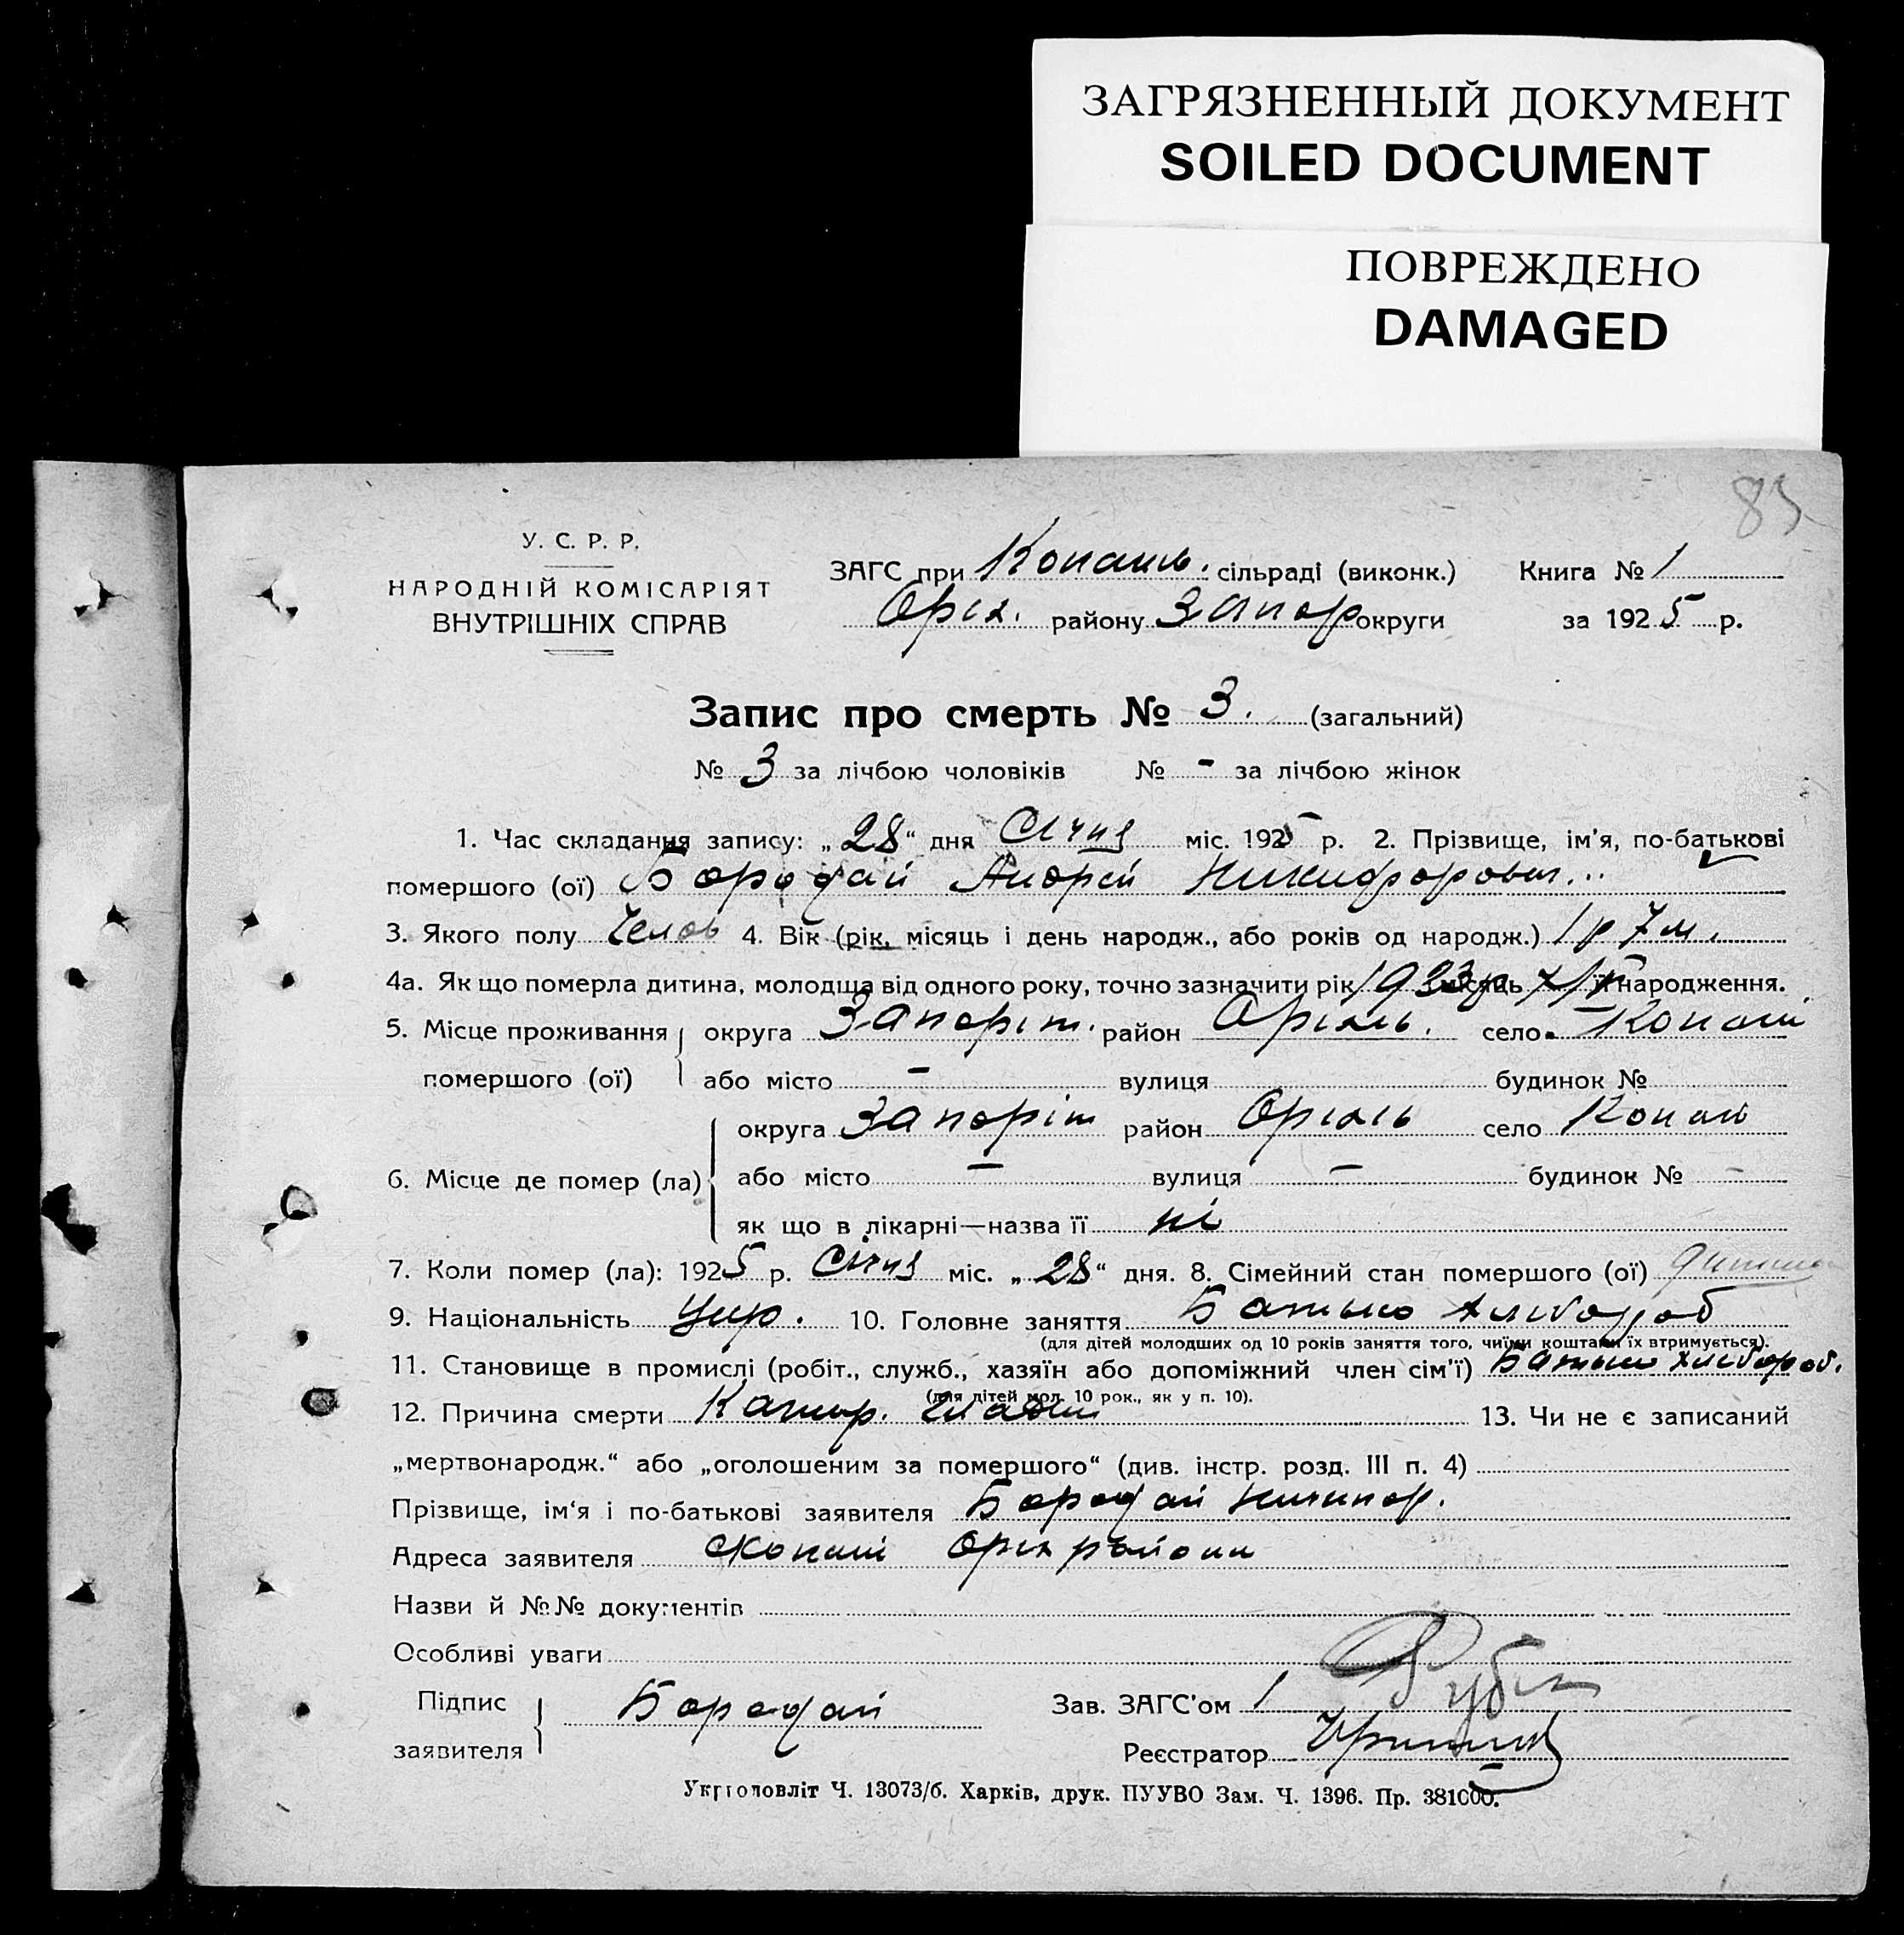 ЗАГРЯЗНЕННЫЙ ДОКУМЕНТ
SOILED DOCUMENT
ПОВРЕЖДЕНО
DAMAGED
83
У. С. Р. Р.
НАРОДНІЙ КОМІСАРІЯТ
ВНУТРІШНІХ СПРАВ
ЗАГС при Копань. сільраді (виконк.) Книга № 1
Оріх. району Запор округи за 1925 р.
Запис про смерть № 3. (загальний)
№ 3 за лічбою чоловіків № - за лічбою жінок
1. Час складання запису: „28“ дня Січня міс. 1925 р. 2. Прізвище, ім'я, по-батькові
помершого (ої) Бородай Андрей Никифорович
3. Якого полу Челов 4. Вік (рік, місяць і день народж., або років од народж.) 1 р 7 м.
4а. Як що померла дитина, молодща від одного року, точно зазначити рік 1923 р місяць народження.
5. Місце проживання округа Запоріж. район Оріхів. село Копані
помершого (ої) або місто — вулиця будинок №
округа Запоріж район Оріхів село Копані
6. Місце де помер (ла) або місто — вулиця — будинок № —
як що в лікарні—назва її ні
7. Коли помер (ла): 1925 р. Січня міс. „28“ дня. 8. Сімейний стан помершого (ої) дитина
9. Національність Укр. 10. Головне заняття Батько хлібороб
(для дітей молодших од 10 років заняття того, чиїми коштами їх втримується).
11. Становище в промислі (робіт., служб., хазяїн або допоміжний член сім'ї) Батько хлібороб.
(для дітей мол. 10 рок., як у п. 10).
12. Причина смерти Катар. 13. Чи не є записаний
„мертвонародж.“ або „оголошеним за помершого“ (див. інстр. розд. III п. 4)
Прізвище, ім'я і по-батькові заявителя Бородай Ничипор.
Адреса заявителя с Копані Оріх району
Назви й №№ документів
Особливі уваги
Підпис заявителя Бородай Зав. ЗАГС'ом
Реєстратор
Укрголовліт Ч. 13073/б. Харків, друк. ПУУВО Зам. Ч. 1396. Пр. 381000.